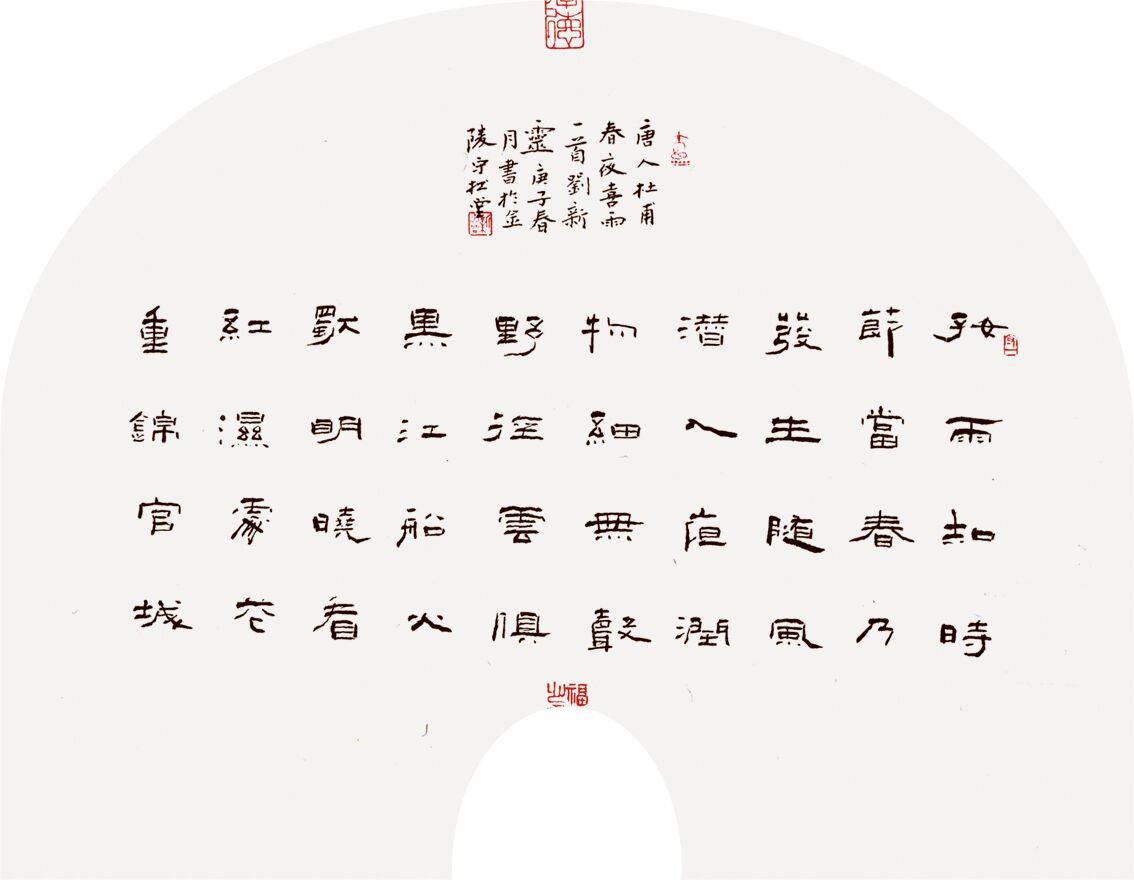 唐人杜甫
春夜喜雨
一首劉新
靈庚子春
月書於金
陵守拙堂
好雨知時
節當春乃
發生随風
潛入夜潤
物細無聲
野徑雲俱
黑江船火
獨明曉看
紅濕處花
重錦官城